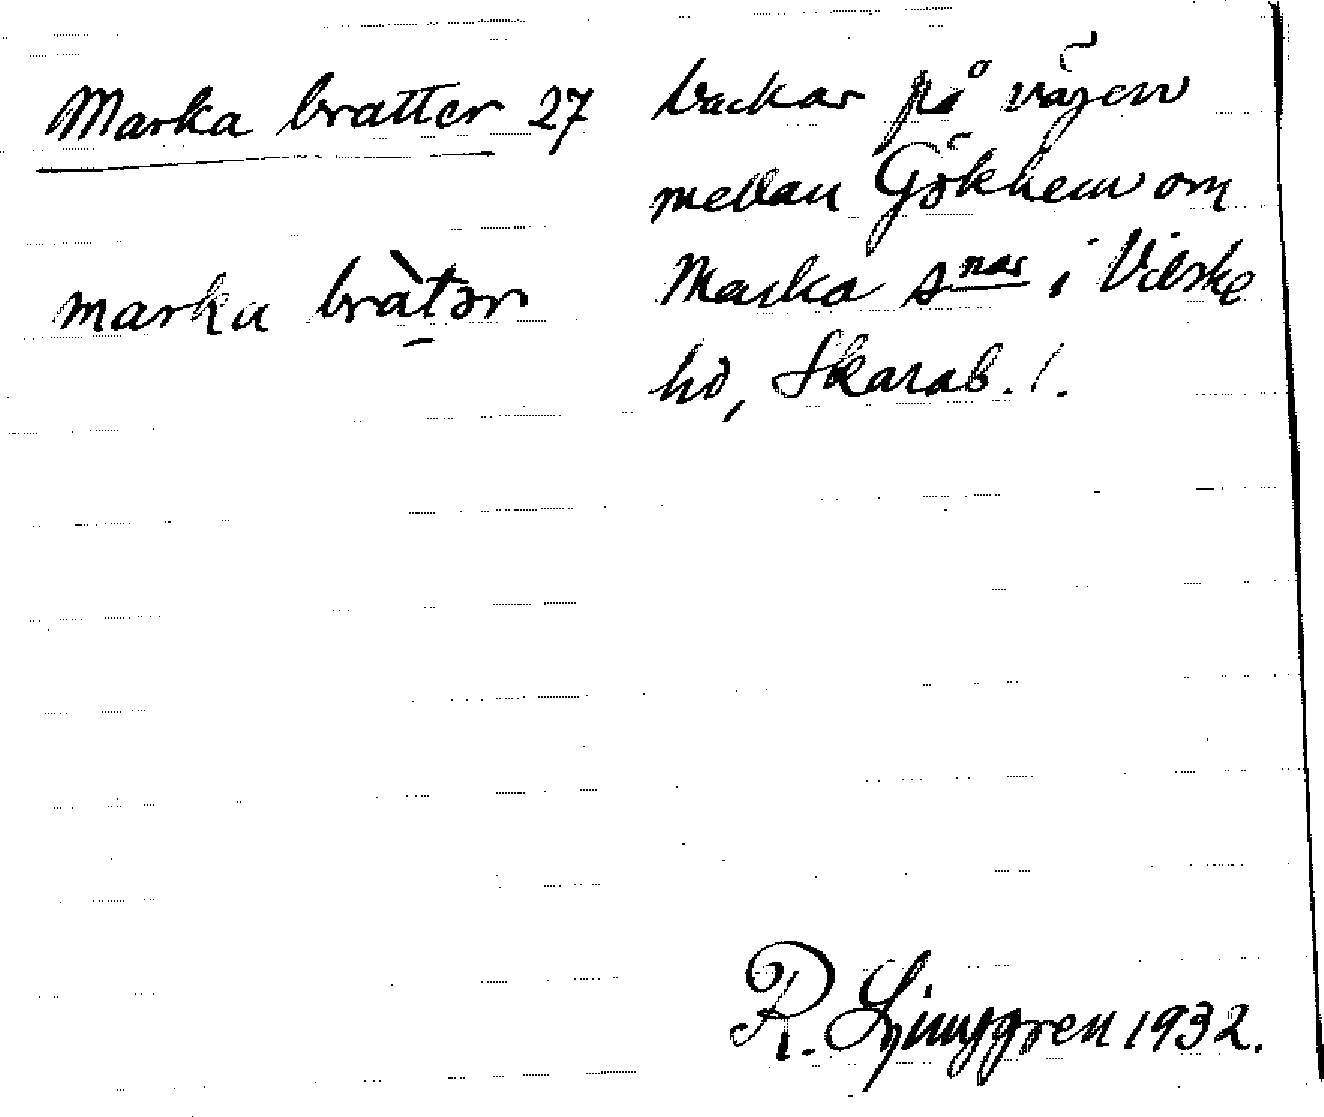 Marka bratter 27 backar på vägen
mellan Gökhem om
marka bràtər Marka snar i Vilske
hd, Skarab. l.
R. Ljunggren 1932.